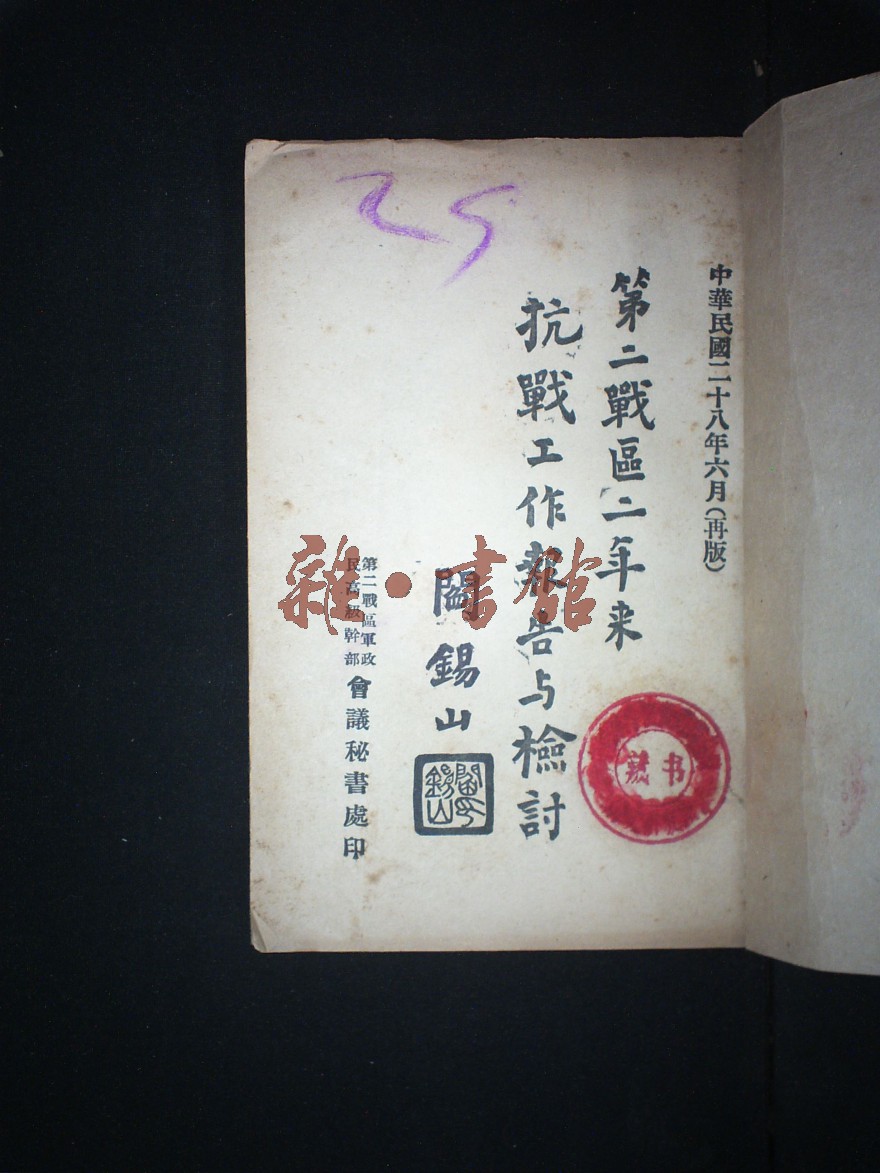 中華民國二十八年六月（再版）
第二戰區二年来
抗戰工作報告与檢討
閻錫山
第二戰區軍政
民高級幹部
會議秘書處印
25
藏书
雜·書館